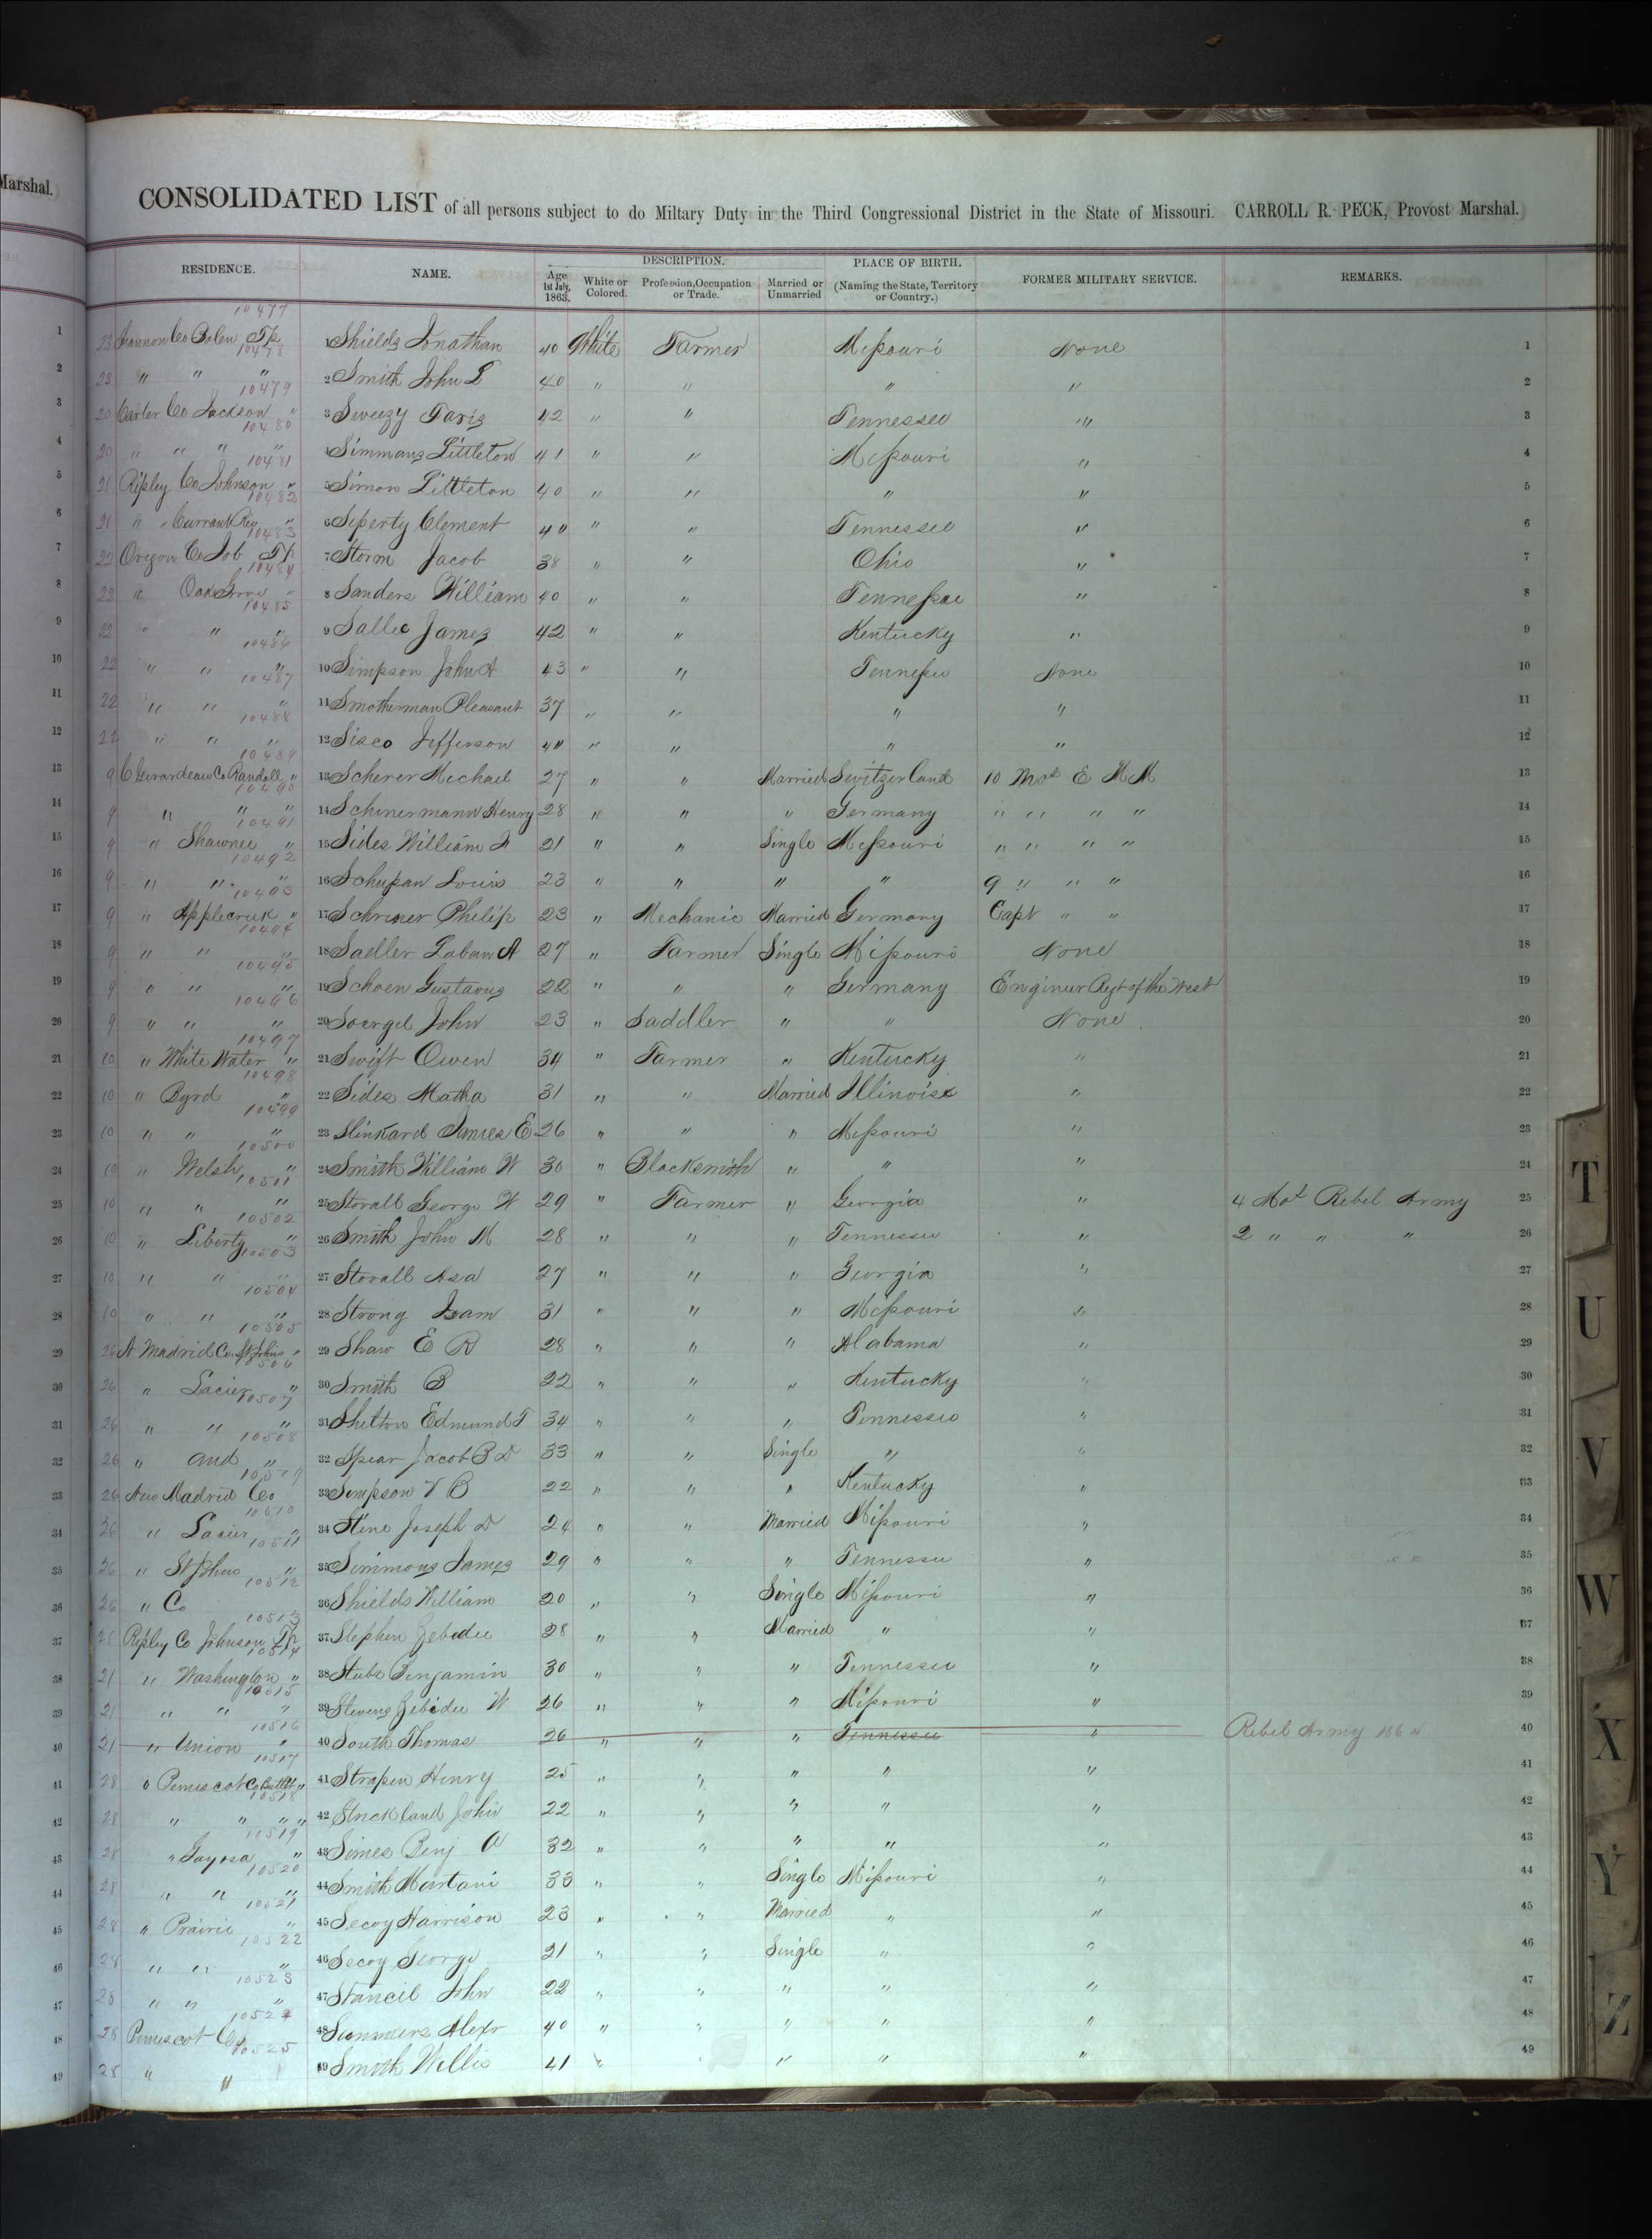 Marshal.
CONSOLIDATED LIST of all persons subject to do Miltary Duty in the Third Congressional District in the State of Missouri. CARROLL R. PECK, Provost Marshal.
RESIDENCE. NAME. DESCRIPTION. PLACE OF BIRTH. FORMER MILITARY SERVICE. REMARKS.
Age 1st July, 1863. White or Colored. Profession, Occupation or Trade. Married or Unmarried (Naming the State, Territory or Country.)
10477
1 23 Shannon Co Bolen Tp 1 Shields Jonathan 40 White Farmer Missouri None 1
10478
2 23 " " " 2 Smith John L 40 " " " " 2
10479
3 20 Carter Co Jackson " 3 Sweezy Faris 42 " " Tennessee " 3
10480
4 20 " " " " 4 Simmans Littleton 41 " " Missouri " 4
10481
5 21 Ripley Co Johnson " 5 Simon Littleton 40 " " " " 5
10482
6 21 " " Currant Riv " 6 Seperty Clement 40 " " Tennessee " 6
10483
7 22 Oregon Co Job Tp 7 Storm Jacob 38 " " Ohio " 7
10484
8 22 " Oak Grove " 8 Sanders William 40 " " Tennessee " 8
10485
9 22 " " " 9 Sallee James 42 " " Kentucky " 9
10486
10 22 " " " 10 Simpson John A 43 " " Tennessee None 10
10487
11 22 " " " 11 Smotherman Pleasant 37 " " " " 11
10488
12 22 " " " 12 Sisco Jefferson 40 " " " " 12
10489
13 9 C Girardeau Co Randall " 13 Scherer Michael 27 " " Married Switzerland 10 Mos E M M 13
10490
14 9 " " " 14 Schenermann Henry 28 " " " Germany " " " " 14
10491
15 9 " Shawnee " 15 Sides William F 21 " " Single Missouri " " " " 15
10492
16 9 " " " 16 Schupan Louis 23 " " " " 9 " " " 16
10493
17 9 " Applecreek " 17 Schriner Philip 23 " Mechanic Married Germany Capt " " 17
10494
18 9 " " " 18 Sadler Laban A 27 " Farmer Single Missouri None 18
10495
19 9 " " " 19 Schoen Gustavus 22 " " " Germany Engineer Regt of the West 19
10496
20 9 " " " 20 Soergel John 23 " Saddler " " None 20
10497
21 10 " White Water " 21 Swift Owen 34 " Farmer " Kentucky " 21
10498
22 10 " Byrd " 22 Sides Matha 31 " " Married Illinois " 22
10499
23 10 " " " 23 Slinkard James E 26 " " " Missouri " 23
10500
24 10 " Welsh " 24 Smith William W 30 " Blacksmith " " " 24
10501
25 10 " " " 25 Stovall George W 29 " Farmer " Georgia " 4 Mos Rebel Army 25
10502
26 10 " Liberty " 26 Smith John M 28 " " " Tennessee " 2 " " " 26
10503
27 10 " " " 27 Stovall Asa 27 " " " Georgia " 27
10504
28 10 " " " 28 Strong Isam 31 " " " Missouri " 28
10505
29 26 N Madrid Co. St Johns " 29 Shaw E R 28 " " " Alabama " 29
10506
30 26 " Lacier " 30 Smith B 22 " " " Kentucky " 30
10507
31 26 " " " 31 Shelton Edmund T 34 " " " Tennessee " 31
10508
32 26 " and " 32 Spear Jacob B D 33 " " Single " " 32
10509
33 26 New Madrid Co 33 Simpson V B 22 " " " Kentucky " 33
10510
34 26 " Lacier " 34 Stine Joseph D 24 " " Married Missouri " 34
10511
35 26 " St Johns " 35 Simmons James 29 " " " Tennessee " 35
10512
36 26 " Co 36 Shields William 20 " " Single Missouri " 36
10513
37 21 Ripley Co Johnson Tp 37 Stephen Zebedee 28 " " Married " " 37
10514
38 21 " Washington " 38 Stubs Benjamin 30 " " " Tennessee " 38
10515
39 21 " " " 39 Stevens Zebedee W 26 " " " Missouri " 39
10516
40 21 " Union " 40 South Thomas 26 " " " Tennessee " Rebel Army 1864 40
10517
41 28 Pemiscot Co Butler " 41 Strapen Henry 25 " " " " " 41
10518
42 28 " " " " 42 Strickland John 22 " " " " " 42
10519
43 28 " Gayosa " 43 Simes Benj A 32 " " " " " 43
10520
44 28 " " " 44 Smith Martani 33 " " Single Missouri " 44
10521
45 28 " Prairie " 45 Secoy Harrison 23 " " Married " " 45
10522
46 28 " " " 46 Secoy George 21 " " Single " " 46
10523
47 28 " " " 47 Stancil John 22 " " " " " 47
10524
48 28 Pemiscot Co 48 Summers Alexr 40 " " " " " 48
10525
49 28 " " 49 Smith Willis 41 " " " " 49
T
U
V
W
X
Y
Z